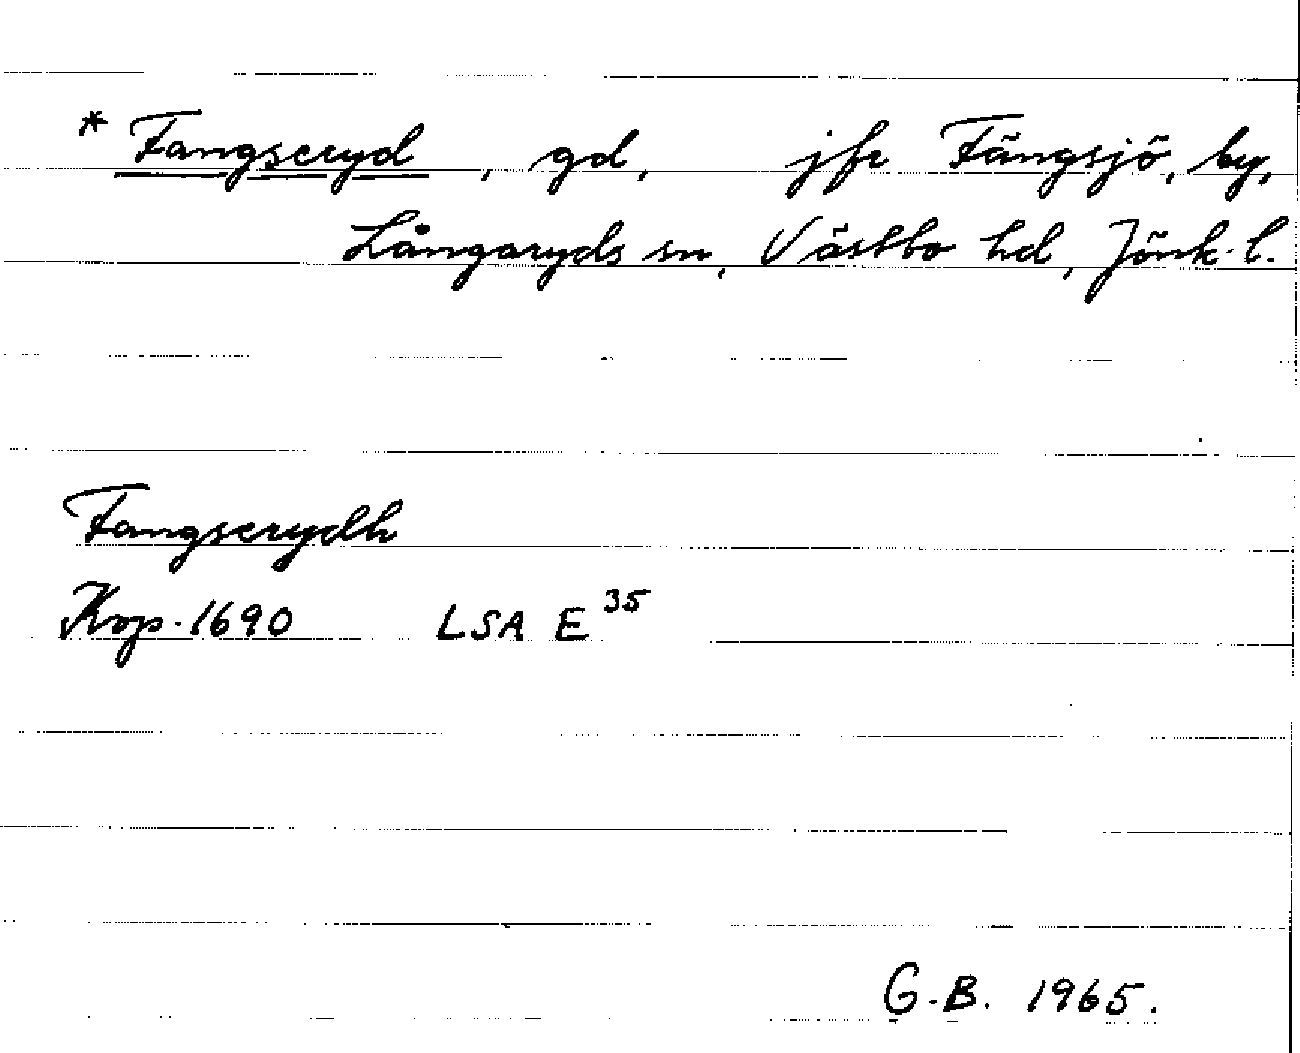 * Fangseryd, gd, jfr Fängsjö, by,
Långaryds sn, Västbo hd, Jönk. l.
Fangserydh
Kop. 1690 LSA E 35
G.B. 1965.